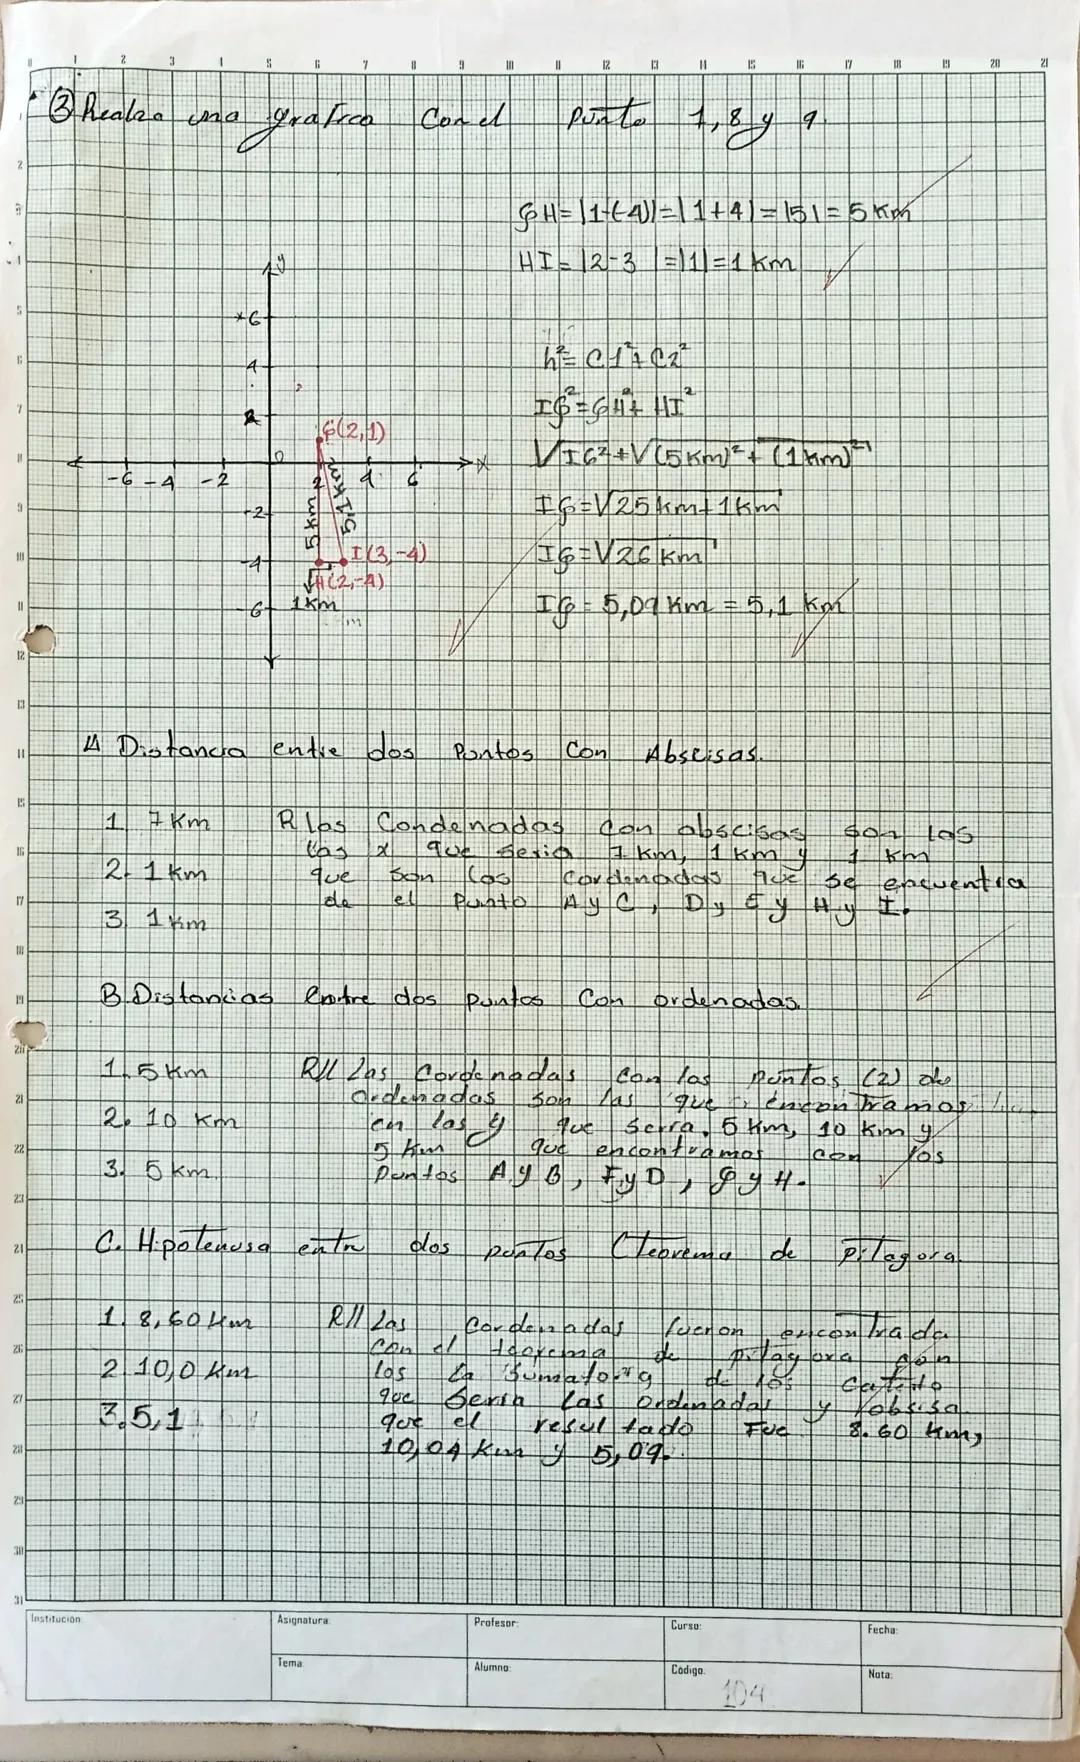 ③ Realza una grafica Con el punto 1, 8 y 9.
GH = |1-(-4)| = |1+4| = |5| = 5 Km
HI = |2-3 | = |1| = 1 Km
h² = C1² + C2²
IG² = GH² + HI²
√IG² + √(5Km)² + (1Km)²
IG = √25 km + 1Km
IG = √26 Km
IG = 5,09 Km = 5,1 Km
y
6
4
2
G(2,1)
0
x
-6 -4 -2 2 4 6
-2
5 Km
5,1 Km
-4
I(3,-4)
H(2,-4)
1Km
-6
A Distancia entre dos Puntos Con Abscisas.
1 7 Km R las Condenadas con abscisas son las
las x que seria 7 km, 1 km y 1 km
2. 1 Km que son las cordenadas que se encuentra
de el Punto A y C, D y E y H y I.
3. 1 Km
B. Distancias Entre dos puntos Con ordenadas.
1. 5 Km R// Las Cordenadas con las puntos (2) de
Ordenadas son las que encontramos
2. 10 Km en las y que serra. 5 Km, 10 Km y
5 Km que encontramos con los
3. 5 Km Puntos A y B, F y D, G y H.
C. Hipotenusa entre dos puntos (teorema de pitagora.
1. 8,60 Km R// Las Cordenadas fueron encontrada
con el teorema de pitagora con
2. 10,0 Km los la sumatoria de los Cateto
que seria las ordenadas y absisa
3. 5,1 que el resultado Fue 8.60 Km,
10,04 Km y 5,09.
Institución:
Asignatura:
Profesor:
Curso:
Fecha:
Tema:
Alumno:
Código: 104
Nota: